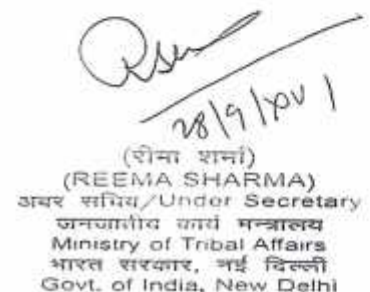 28/9/XV
(रीमा शर्मा)
(REEMA SHARMA)
अवर सचिव/Under Secretary
जनजातीय कार्य मन्त्रालय
Ministry of Tribal Affairs
भारत सरकार, नई दिल्ली
Govt. of India, New Delhi